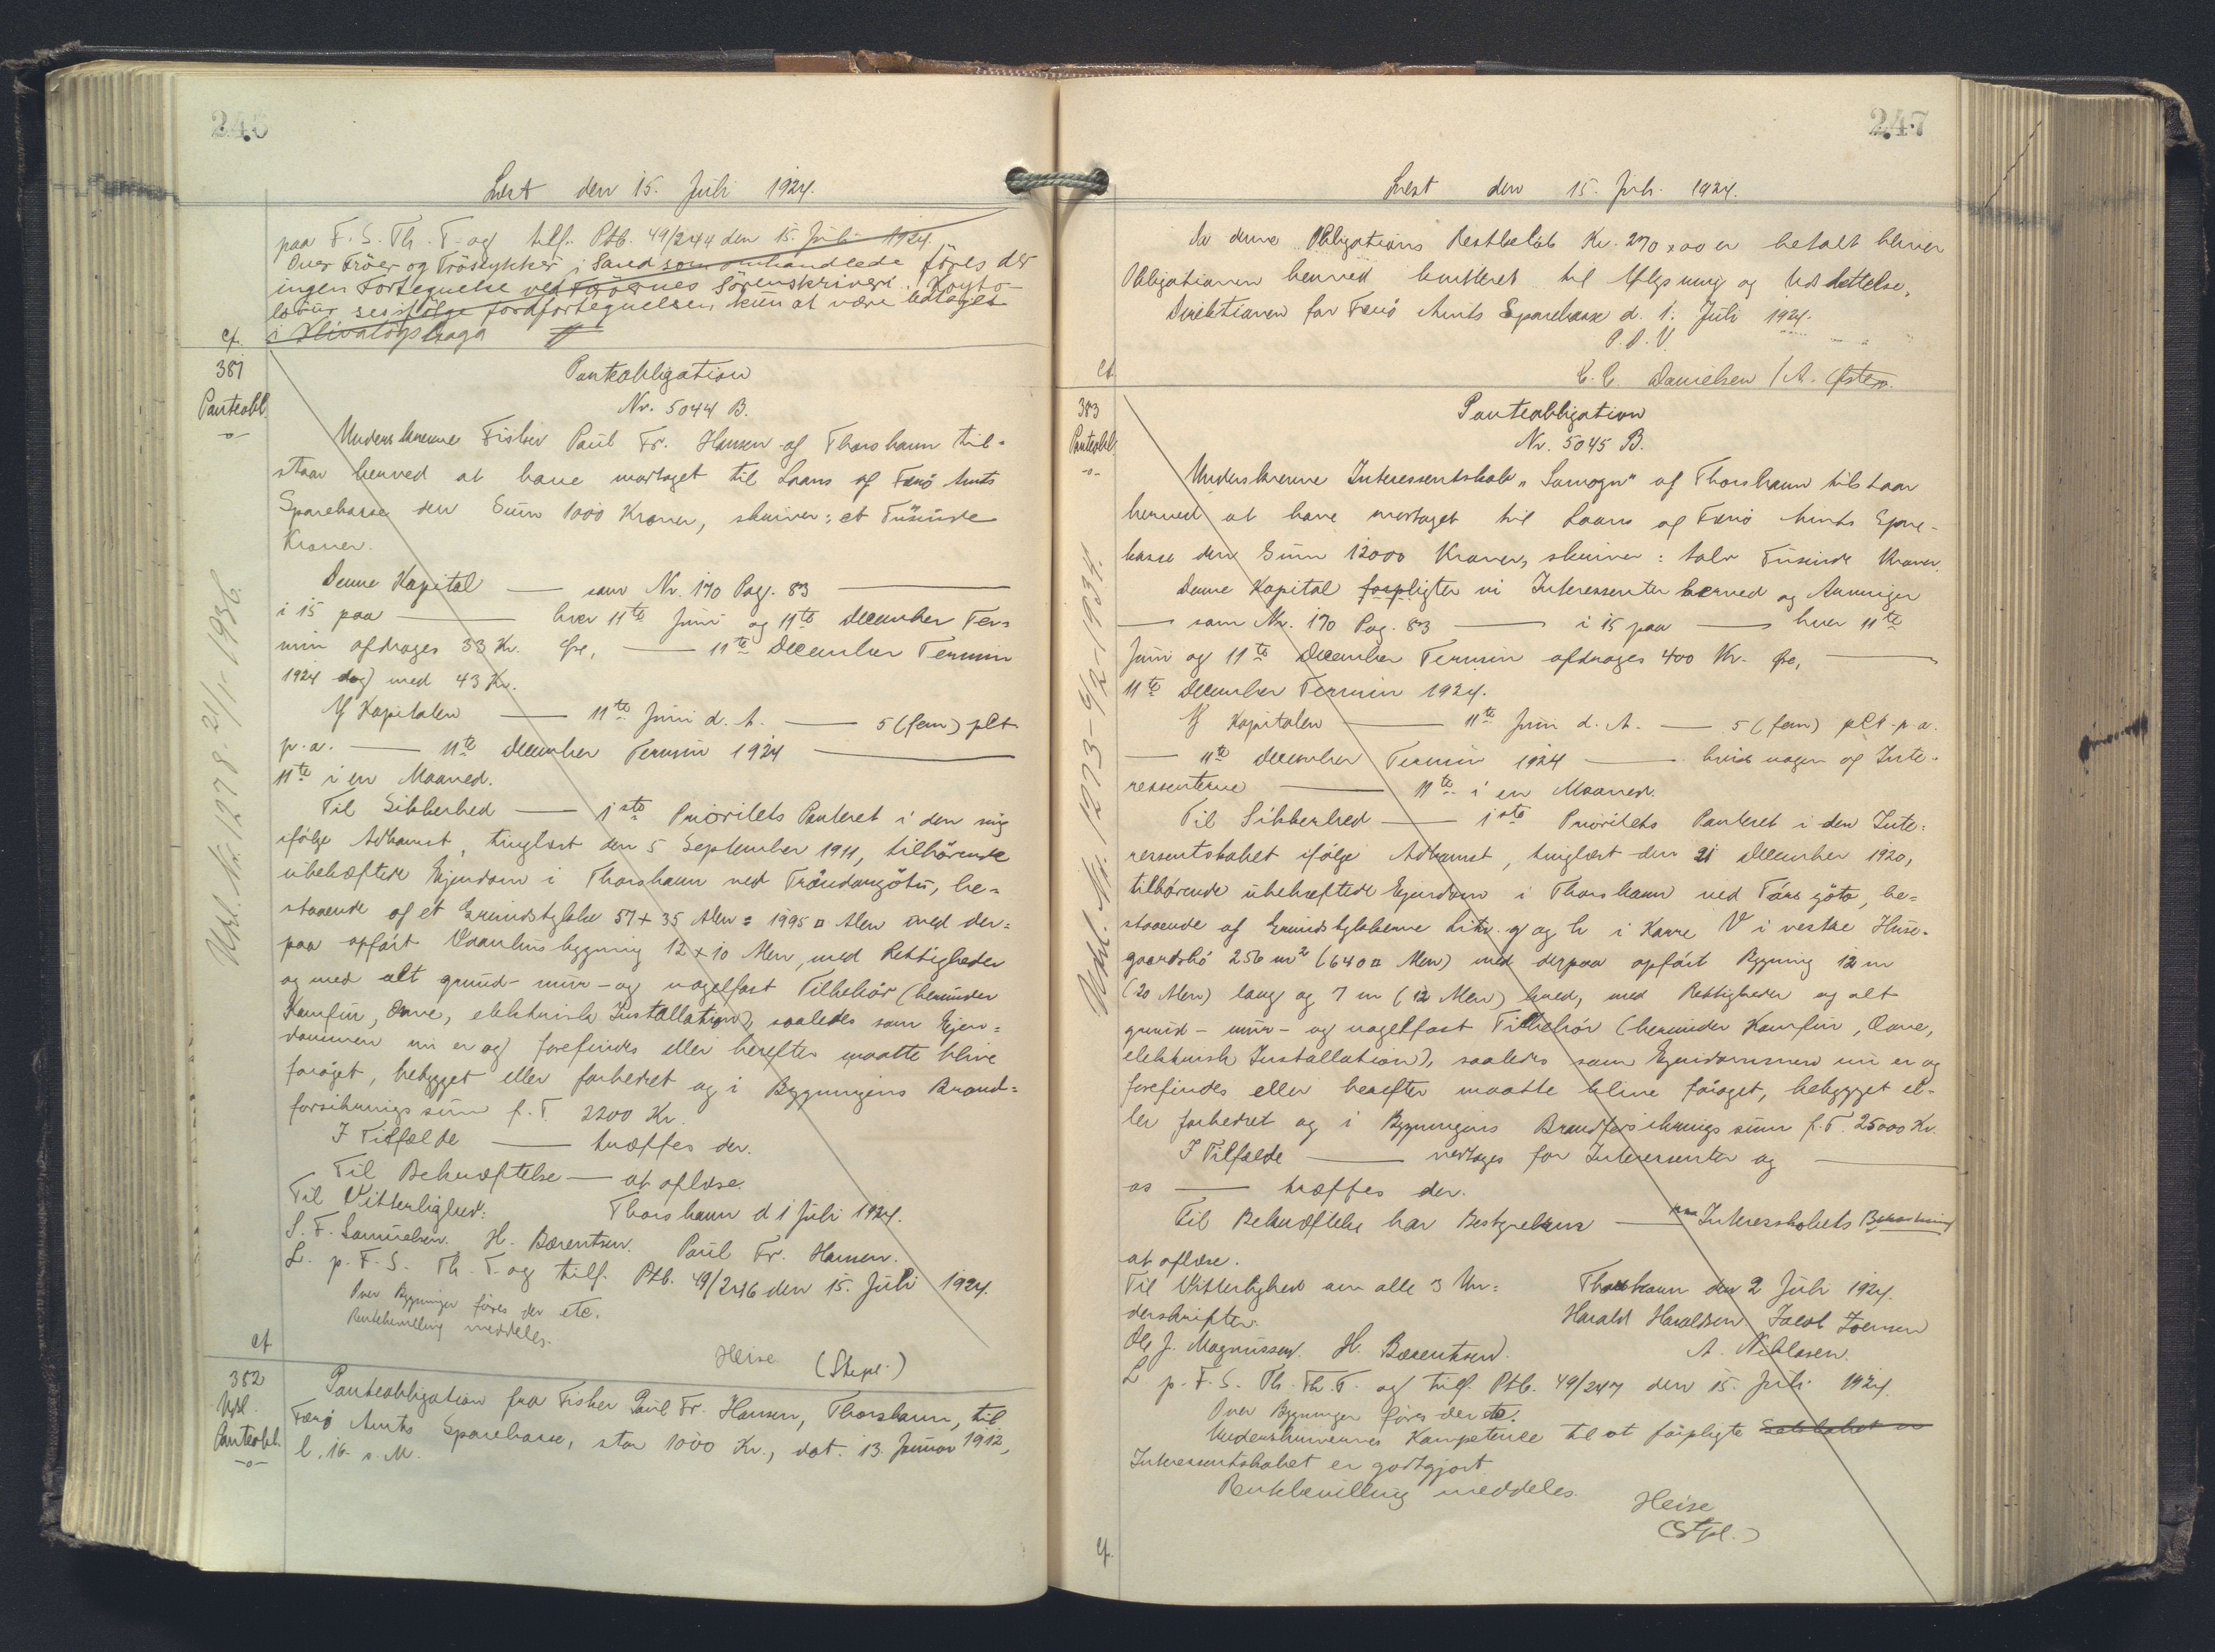 246
Læst den 15. Juli 1924.
paa F. S. Th. T. og tilf. Ptb. 49/244 den 15. Juli 1924.
Over Tröer og Tröstykker i Sand som omhandlede föres der
ingen Fortegnelse ved Færöernes Sörenskriveri.
lovur ses ifölge Jordfortegnelsen, kun at være
i
cf.
381
Panteobl.
-o-
Panteobligation
Nr. 5044 B.
Underskrevne Fisker Paul Fr. Hansen af Thorshavn til-
staar herved at have modtaget til Laans af Færö Amts
Sparekasse den Sum 1000 Kroner, skriver: et Tusinde
Kroner.
Denne Kapital — som Nr. 170 Pag. 83 —
i 15 paa — hver 11te Juni og 11te December Ter-
min afdrages 33 Kr. Øre, — 11te December Termin
1924 dog med 43 Kr.
Af Kapitalen — 11te Juni d. A. — 5 (fem) pCt
p. a. — 11te December Termin 1924 —
11te i en Maaned.
Til Sikkerhed — 1ste Prioritets Panteret i den mig
ifølge Adkomst, tinglæst den 5 September 1911, tilhørende
ubehæftede Ejendom i Thorshavn ved Tróndargötu, be-
staaende af et Grundstykke 57 + 35 Alen = 1995 □ Alen med der-
paa opført Vaaanhusbygning 12 x 10 Alen, med Rettigheder
og med alt grund- mur- og nagelfast Tilbehör (herunder
Komfur, Ovne, elektrisk Installation), saaledes som Ejen-
dommen nu er og forefindes eller herefter maatte blive
foröget, bebygget eller forbedret og i Bygningens Brand-
forsikringssum p. T. 2200 Kr.
I Tilfælde — træffes der.
Til Bekræftelse — at aflæse.
Til Vitterlighed: Thorshavn d 1 Juli 1924.
S. F. Samuelsen. H. Bærentsen. Paul Fr. Hansen.
L. p. F. S. Th. T. og tilf. Ptb. 49/246 den 15. Juli 1924.
Over Bygninger föres der etc.
Rentebevilling meddeles.
Heise (Stpl.)
cf
382
Udsl.
Panteobl.
-o-
Panteobligation fra Fisker Paul Fr. Hansen, Thorshavn, til
Færø Amts Sparekasse, stor 1000 Kr., dat. 13. Januar 1912,
l. 16. s. M.
Udsl. Nr. 1278 - 21/1 - 1936.
247
Læst den 15. Juli 1924.
Da denne Obligations Restbeløb Kr. 270 x 00 er betalt bliver
Obligationen herved kvitteret til Aflysning og Udslettelse.
Direktionen for Færö Amts Sparekasse d. 1. Juli 1924.
P. D. V.
C. C. Danielsen / A.
cf.
383
Panteobl.
-o-
Panteobligation
Nr. 5045 B.
Underskrevne Interessentskab „Samogn" af Thorshavn tilstaar
herved at have modtaget til Laans af Færö Amts Spare-
kasse den Sum 12000 Kroner, skriver: tolv Tusinde Kroner.
Denne Kapital forpligter vi Interessenter herved og Arvinger
— som Nr. 170 Pag. 83 — i 15 paa — hver 11te
Juni og 11te December Termin afdrages 400 Kr. Øre, —
11te December Termin 1924.
Af Kapitalen — 11te Juni d. A. — 5 (fem) pCt p. a.
— 11te December Termin 1924 — hvis nogen af Inte-
ressenterne — 11te i en Maaned.
Til Sikkerhed — 1ste Prioritets Panteret i den Inte-
ressentskabet ifölge Adkomst, tinglæst den 21 December 1920,
tilhörende ubehæftede Ejendom i Thorshavn ved göta, be-
staaende af Grundstykkerne Litr. g og h i Karre V i vestre Huse-
gaardsbö 256 m² (640 □ Alen) med derpaa opfört Bygning 12 m
(20 Alen) lang og 7 m (12 Alen) bred, med Rettigheder og alt
grund- mur- og nagelfast Tilbehör (herunder Komfur, Ovne,
elektrisk Installation), saaledes som Ejendommen nu er og
forefindes eller herefter maatte blive foröget, bebygget el-
ler forbedret og i Bygningens Brandforsikringssum p. T. 25000 Kr.
I Tilfælde — vedtages for Interessenter og —
os — træffes der.
Til Bekræftelse har Bestyrelsen — Interesskabets
at aflæse.
Til Vitterlighed om alle 3 Un- Thorshavn den 2 Juli 1924.
derskrifter. Harald Haraldsen Jacob Joensen
Ole J. Magnussen. H. Bærentsen. A. Niclasen.
L. p. F. S. Th. Th. T. og tilf. Ptb. 49/247 den 15. Juli 1924.
Over Bygninger föres der etc.
Underskrivernes Kompetence til at forpligte Selskabet er
Interessentskabet er godtgjort.
Rentebevilling meddeles.
Heise
(Stpl.)
cf.
Udsl. Nr. 1273 - 9/2 - 1934.